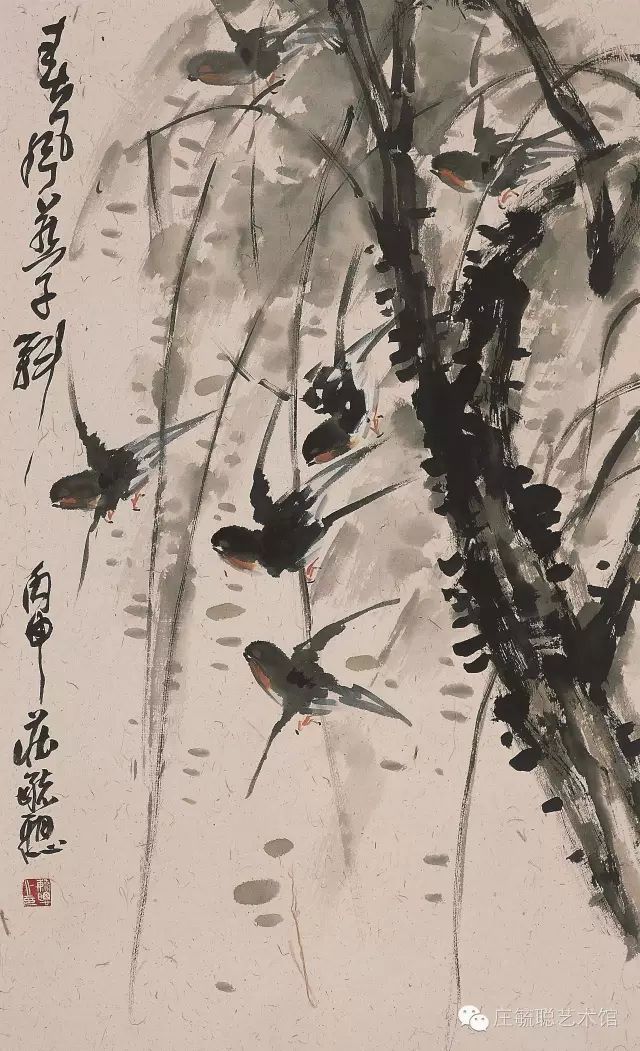 春风燕子斜
丙申
庄毓聪
庄毓聪艺术馆